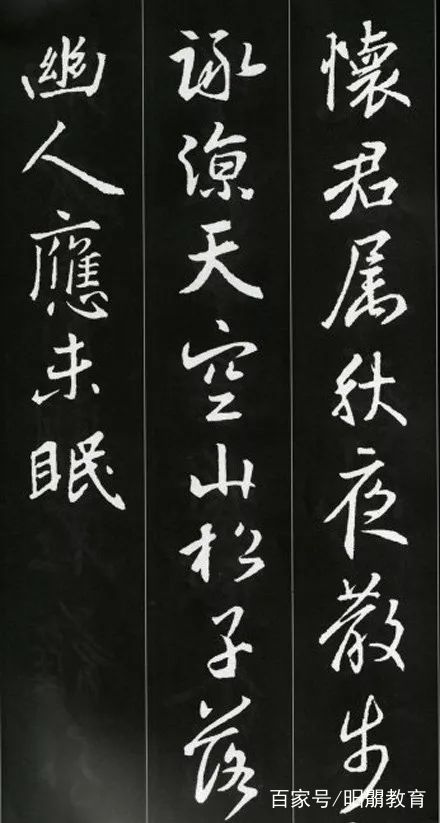 懷君属秋夜散步
詠涼天空山松子落
幽人應未眠
百家号/明朋教育